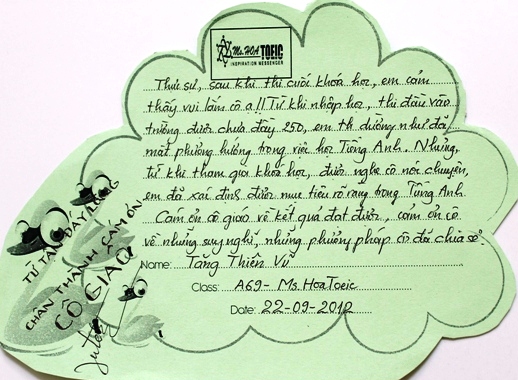 Ms. HOA TOEIC
INSPIRATION MESSENGER
Thực sự, sau khi thi cuối khoá học, em cảm
thấy vui lắm cô ạ!! Từ khi nhập học, thi đầu vào
trường được chưa đầy 250, em th dường như đã
mất phương hướng trong việc học Tiếng Anh. Nhưng,
từ khi tham gia khoá học, được nghe cô nói chuyện,
em đã xác định được mục tiêu rõ ràng trong Tiếng Anh
Cám ơn cô giáo về kết quả đạt được, cám ơn cô
về những suy nghĩ, những phương pháp cô đã chia sẻ.
Name: Tăng Thiên Vũ
Class: A69 - Ms. HoaToeic
Date: 22-09-2012
TỪ TẬN ĐÁY LÒNG
CHÂN THÀNH CÁM ƠN
CÔ GIÁO